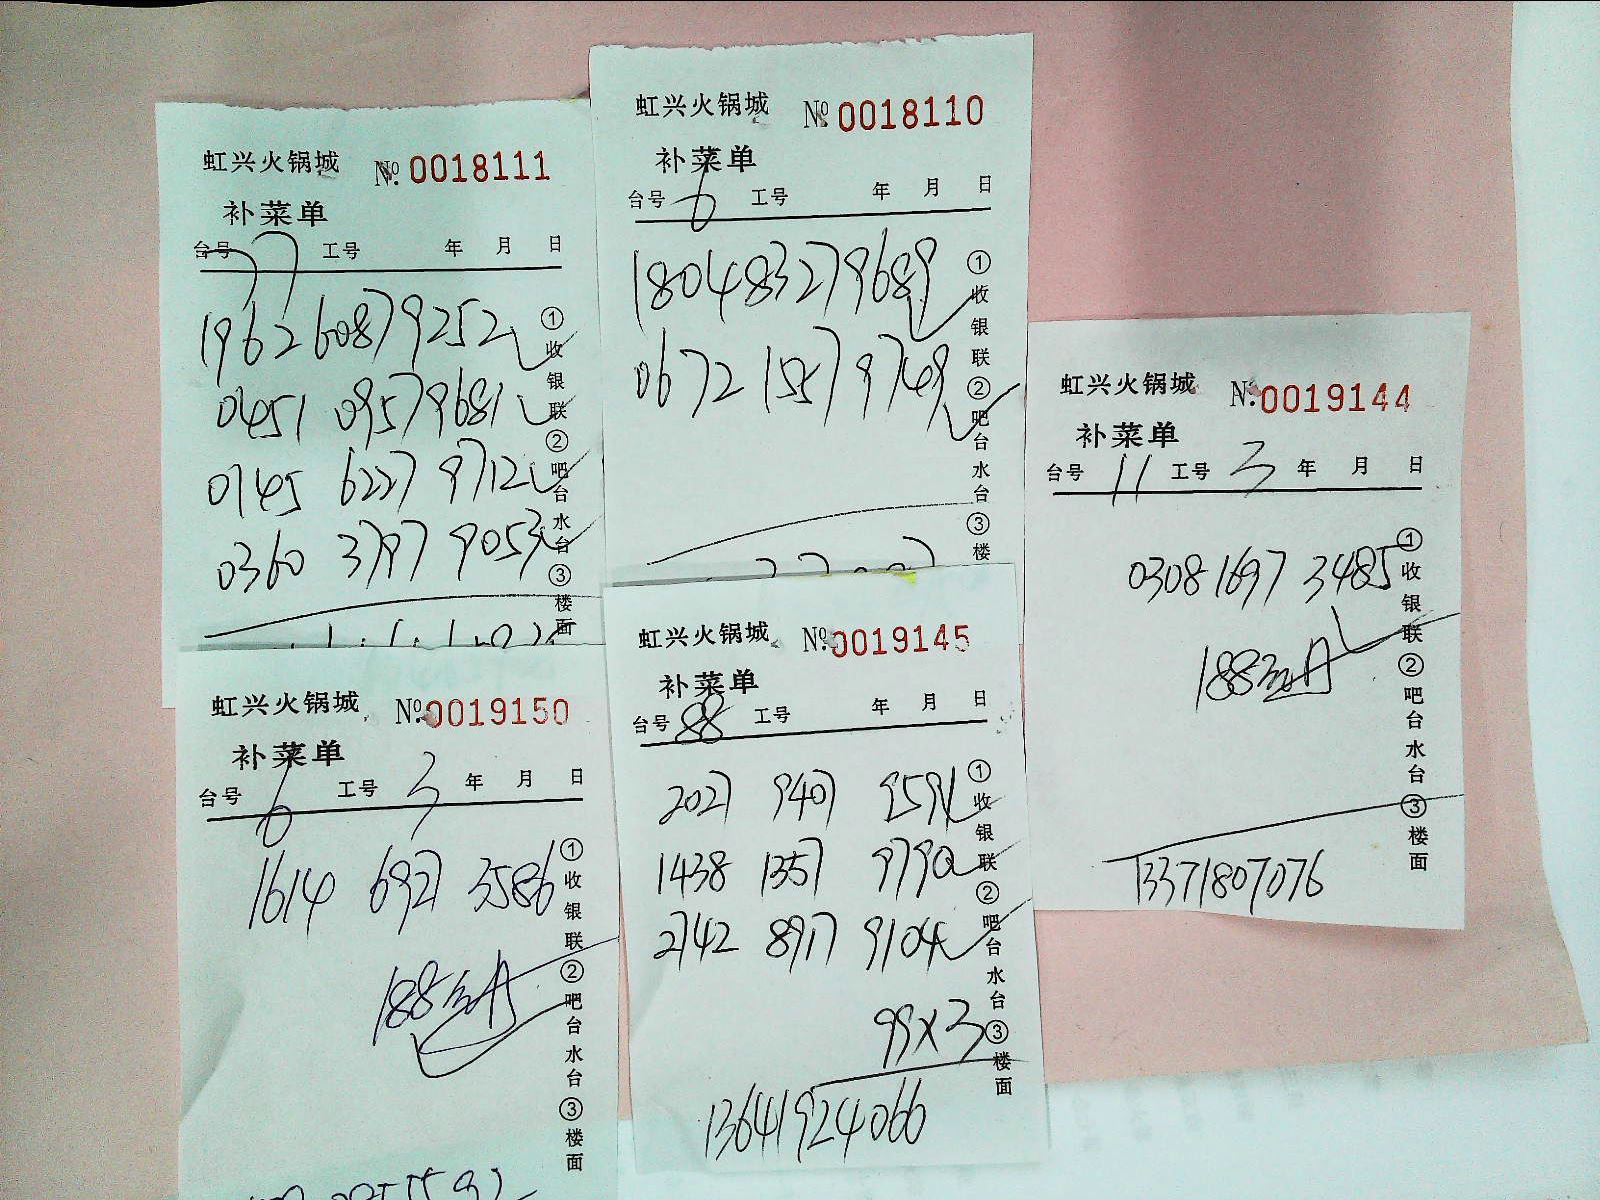 虹兴火锅城 № 0018111
补菜单
台号 77 工号 年 月 日
1962 6087 9252
0451 0957 9681
0145 6227 9712
0360 3797 9053
①收银联②吧台水台③楼面
虹兴火锅城 № 0018110
补菜单
台号 6 工号 年 月 日
1804 8327 9689
0672 1557 9749
①收银联②吧台水台③楼
虹兴火锅城 № 0019144
补菜单
台号 11 工号 3 年 月 日
0308 1697 3485
188
13371807076
①收银联②吧台水台③楼面
虹兴火锅城 № 0019150
补菜单
台号 6 工号 3 年 月 日
1614 6927 3586
188
①收银联②吧台水台③楼面
虹兴火锅城 № 0019145
补菜单
台号 88 工号 年 月 日
2027 9407 9591
1438 1357 9790
2742 8917 9104
99×3
13641924066
①收银联②吧台水台③楼面